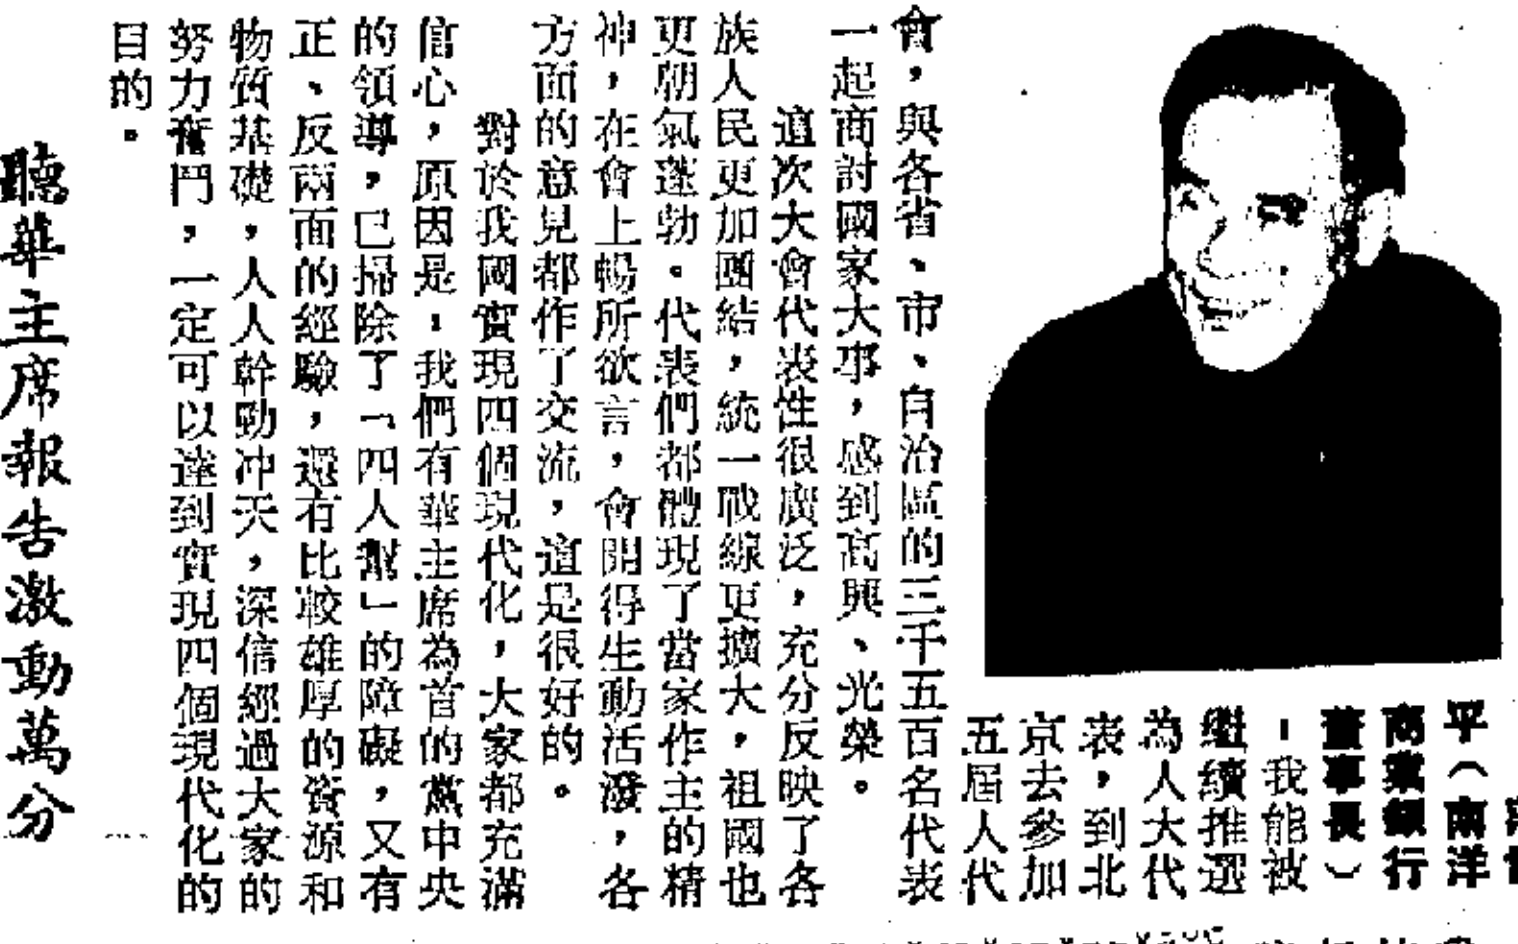 平（南洋
商業銀行
董事長）
：我能被
繼續推選
為人大代
表，到北
京去參加
五屆人代
會，與各省、市、自治區的三千五百名代表
一起商討國家大事，感到高興、光榮。
這次大會代表性很廣泛，充分反映了各
族人民更加團結，統一戰線更擴大，祖國也
更朝氣蓬勃。代表們都體現了當家作主的精
神，在會上暢所欲言，會開得生動活潑，各
方面的意見都作了交流，這是很好的。
對於我國實現四個現代化，大家都充滿
信心，原因是，我們有華主席為首的黨中央
的領導，已掃除了「四人幫」的障礙，又有
正、反兩面的經驗，還有比較雄厚的資源和
物質基礎，人人幹勁冲天，深信經過大家的
努力奮鬥，一定可以達到實現四個現代化的
目的。
聽華主席報告激動萬分